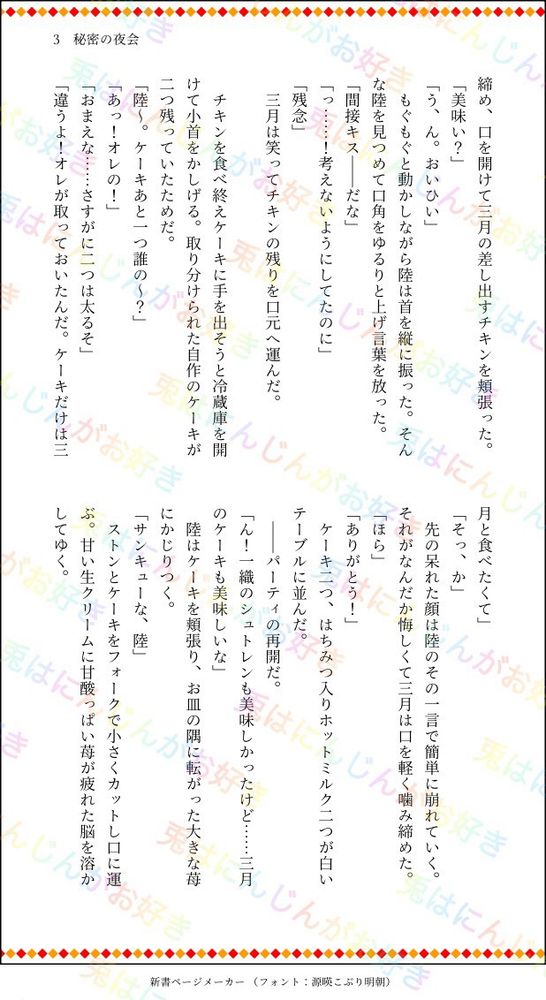 3　秘密の夜会
締め、口を開けて三月の差し出すチキンを頬張った。
「美味い？」
「う、ん。おいひい」
　もぐもぐと動かしながら陸は首を縦に振った。そん
な陸を見つめて口角をゆるりと上げ言葉を放った。
「間接キス――だな」
「っ……！考えないようにしてたのに」
「残念」
　三月は笑ってチキンの残りを口元へ運んだ。
　チキンを食べ終えケーキに手を出そうと冷蔵庫を開
けて小首をかしげる。取り分けられた自作のケーキが
二つ残っていたためだ。
「陸く。ケーキあと一つ誰の～？」
「あっ！オレの！」
「おまえな……さすがに二つは太るぞ」
「違うよ！オレが取っておいたんだ。ケーキだけは三
月と食べたくて」
「そっ、か」
　先の呆れた顔は陸のその一言で簡単に崩れていく。
それがなんだか悔しくて三月は口を軽く噛み締めた。
「ほら」
「ありがとう！」
　ケーキ二つ、はちみつ入りホットミルク二つが白い
テーブルに並んだ。
　――パーティの再開だ。
「ん！一織のシュトレンも美味しかったけど……三月
のケーキも美味しいな」
　陸はケーキを頬張り、お皿の隅に転がった大きな苺
にかじりつく。
「サンキューな、陸」
　ストンとケーキをフォークで小さくカットし口に運
ぶ。甘い生クリームに甘酸っぱい苺が疲れた脳を溶か
してゆく。
兎はにんじんがお好き
新書ページメーカー（フォント：源暎こぶり明朝）